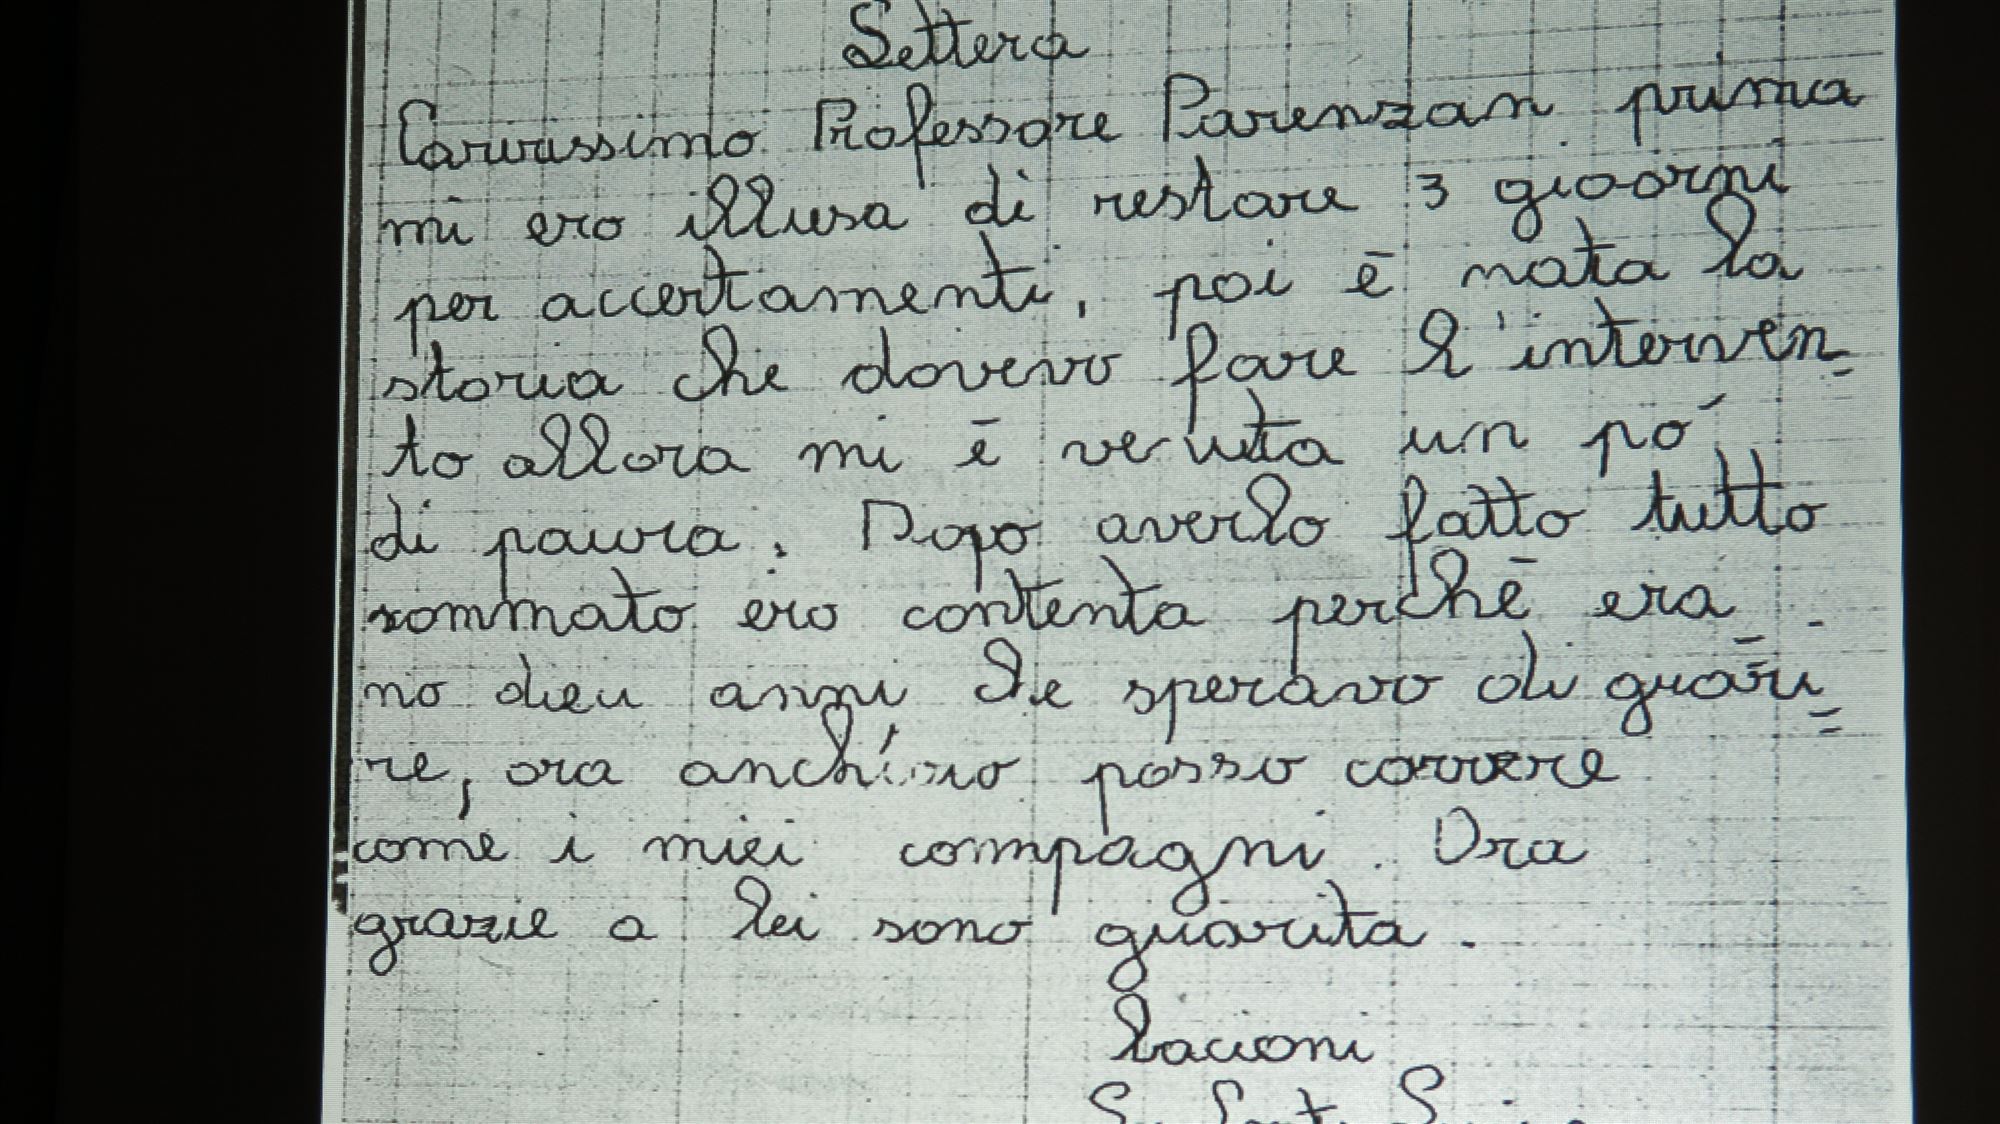 Lettera
Carissimo Professore Parenzan prima
mi ero illusa di restare 3 gioorni
per accertamenti, poi ē nata la
storia che dovevo fare l'interven_
to allora mi ē venuta un pó
di paura. Dopo averlo fatto tutto
sommato ero contenta perchē era_
no dieci anni che speravo di guari=
re, ora anch'io posso correre
come i miei compagni. Ora
grazie a lei sono guarita.
bacioni